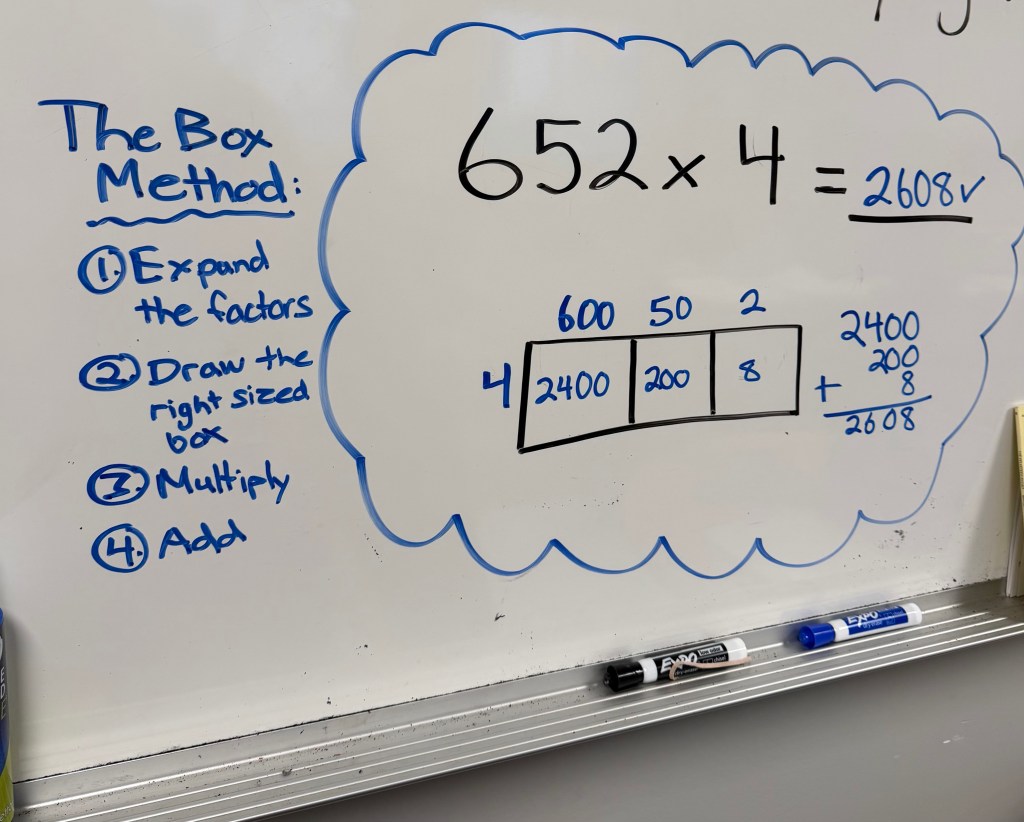 The Box
Method:
① Expand
the factors
② Draw the
right sized
box
③ Multiply
④ Add
652 x 4 = 2608✓
600 50 2
4 2400 200 8
2400
200
+ 8
2608
EXPO
EXPO